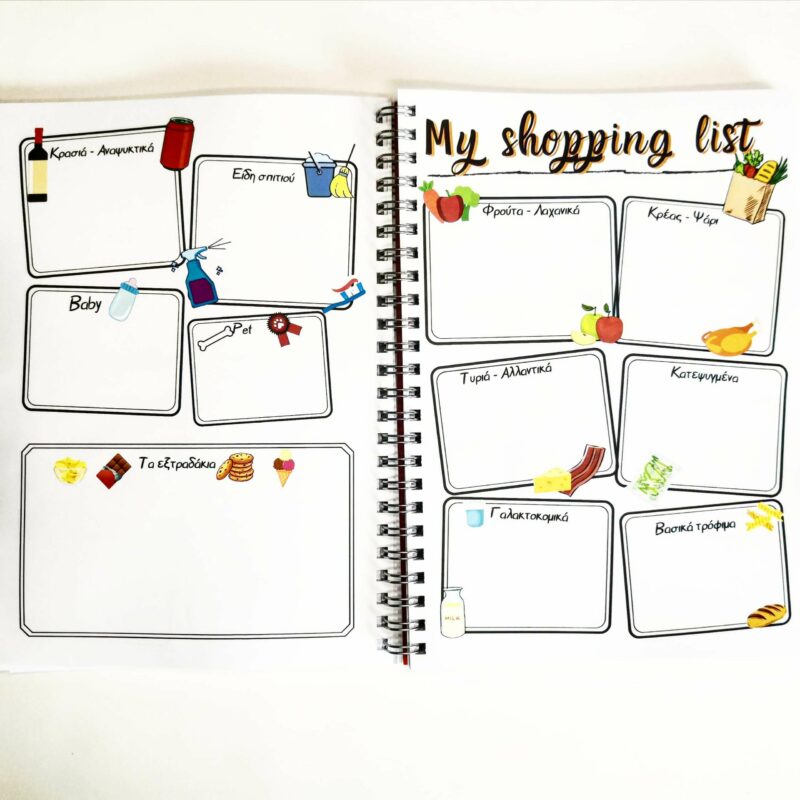 Κρασιά - Αναψυκτικά
Είδη σπιτιού
Baby
Pet
Τα εξτραδάκια
My shopping list
Φρούτα - Λαχανικά
Κρέας - Ψάρι
Τυριά - Αλλαντικά
Κατεψυγμένα
Γαλακτοκομικά
MILK
Βασικά τρόφιμα